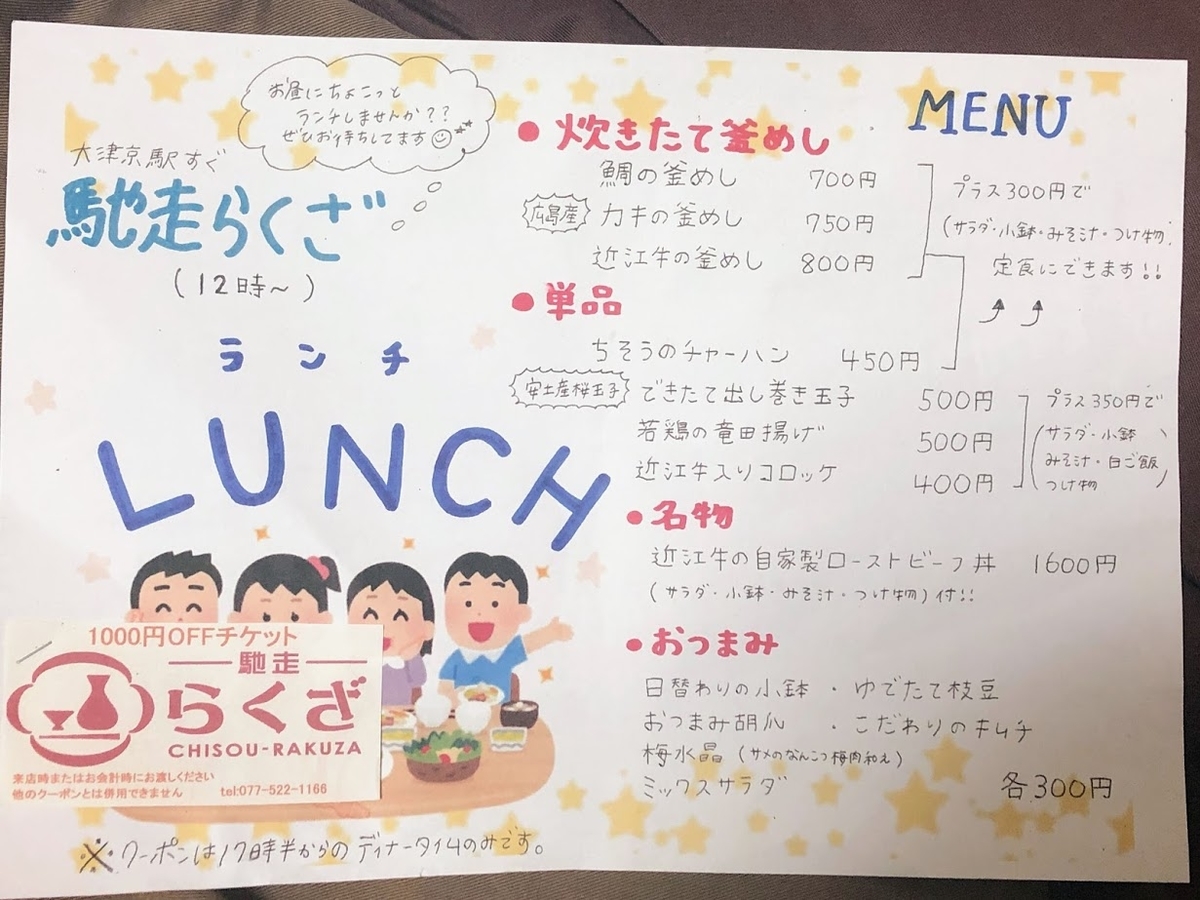 お昼にちょこっと
ランチしませんか??
ぜひお待ちしてます
大津京駅すぐ
馳走らくざ
(12時~)
ランチ
LUNCH
1000円OFFチケット
馳走
らくざ
CHISOU-RAKUZA
来店時またはお会計時にお渡しください
他のクーポンとは併用できません tel:077-522-1166
※クーポンは17時半からのディナータイムのみです。
MENU
●炊きたて釜めし
鯛の釜めし 700円
広島産 カキの釜めし 750円
近江牛の釜めし 800円
プラス300円で
(サラダ・小鉢・みそ汁・つけ物)
定食にできます!!
●単品
ちそうのチャーハン 450円
安土産桜玉子 できたて出し巻き玉子 500円
若鶏の竜田揚げ 500円
近江牛入りコロッケ 400円
プラス350円で
(サラダ・小鉢
みそ汁・白ご飯
つけ物)
●名物
近江牛の自家製ローストビーフ丼 1600円
(サラダ・小鉢・みそ汁・つけ物)付!!
●おつまみ
日替わりの小鉢 ・ゆでたて枝豆
おつまみ胡瓜 ・こだわりのキムチ
梅水晶(サメのなんこつ梅肉和え)
ミックスサラダ 各300円